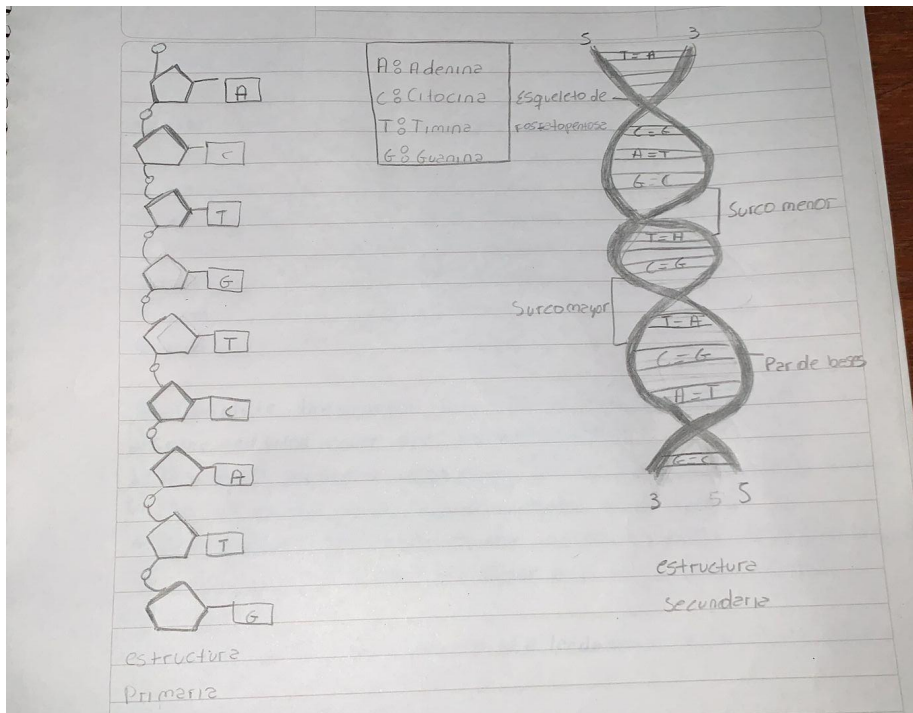 A
C
T
G
T
C
A
T
G
estructura
Primaria
A: Adenina
C: Citocina
T: Timina
G: Guanina
5 3
T = A
Esqueleto de
fosfatopentosa
C = G
A = T
G = C
Surco menor
T = A
C = G
Surco mayor
T = A
C = G
Par de bases
A = T
G = C
3 5 5
estructura
secundaria